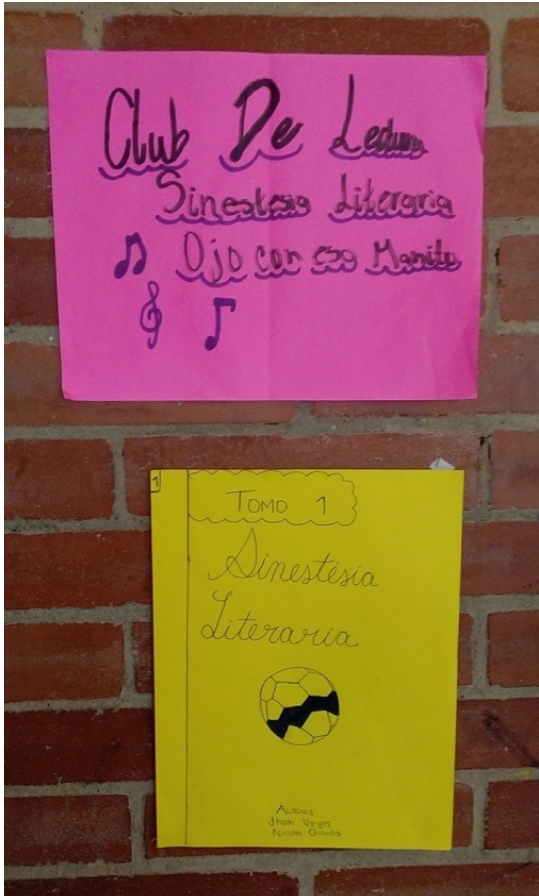 Club De Lectura
Sinestesia Literaria
Ojo con eso Manito
1
TOMO 1
Sinestésia
Literaria
Autores
Jhoan Vargas
Nicolas